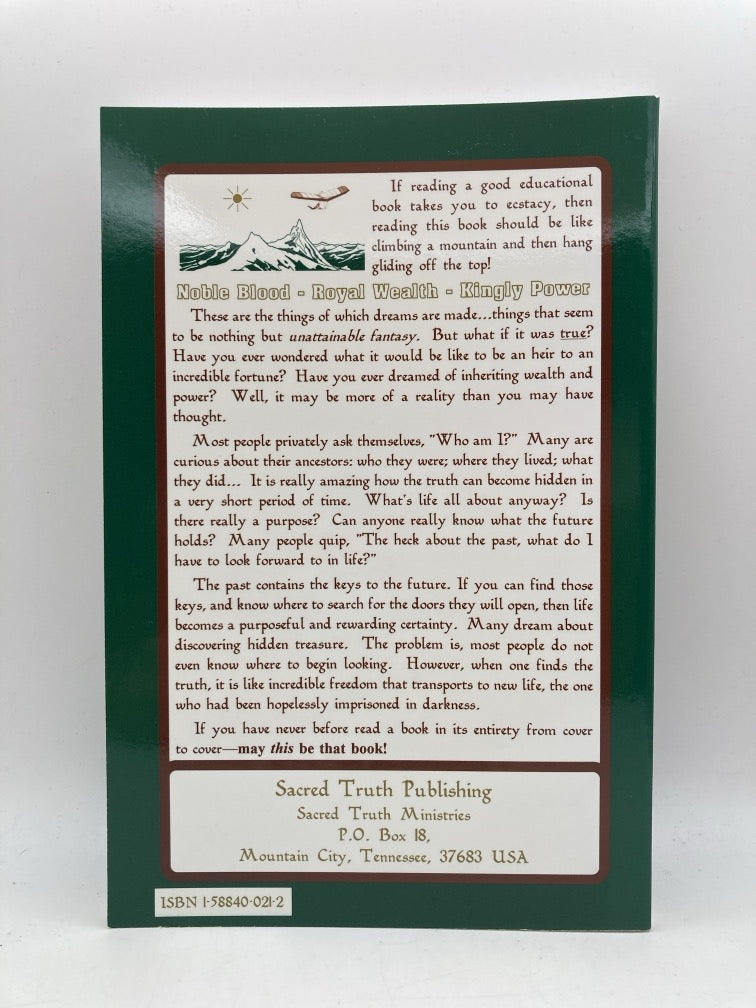 If reading a good educational
book takes you to ecstacy, then
reading this book should be like
climbing a mountain and then hang
gliding off the top!
Noble Blood - Royal Wealth - Kingly Power
These are the things of which dreams are made...things that seem
to be nothing but unattainable fantasy. But what if it was true?
Have you ever wondered what it would be like to be an heir to an
incredible fortune? Have you ever dreamed of inheriting wealth and
power? Well, it may be more of a reality than you may have
thought.
Most people privately ask themselves, "Who am I?" Many are
curious about their ancestors: who they were; where they lived; what
they did... It is really amazing how the truth can become hidden in
a very short period of time. What's life all about anyway? Is
there really a purpose? Can anyone really know what the future
holds? Many people quip, "The heck about the past, what do I
have to look forward to in life?"
The past contains the keys to the future. If you can find those
keys, and know where to search for the doors they will open, then life
becomes a purposeful and rewarding certainty. Many dream about
discovering hidden treasure. The problem is, most people do not
even know where to begin looking. However, when one finds the
truth, it is like incredible freedom that transports to new life, the one
who had been hopelessly imprisoned in darkness.
If you have never before read a book in its entirety from cover
to cover—may this be that book!
Sacred Truth Publishing
Sacred Truth Ministries
P.O. Box 18,
Mountain City, Tennessee, 37683 USA
ISBN 1-58840-021-2